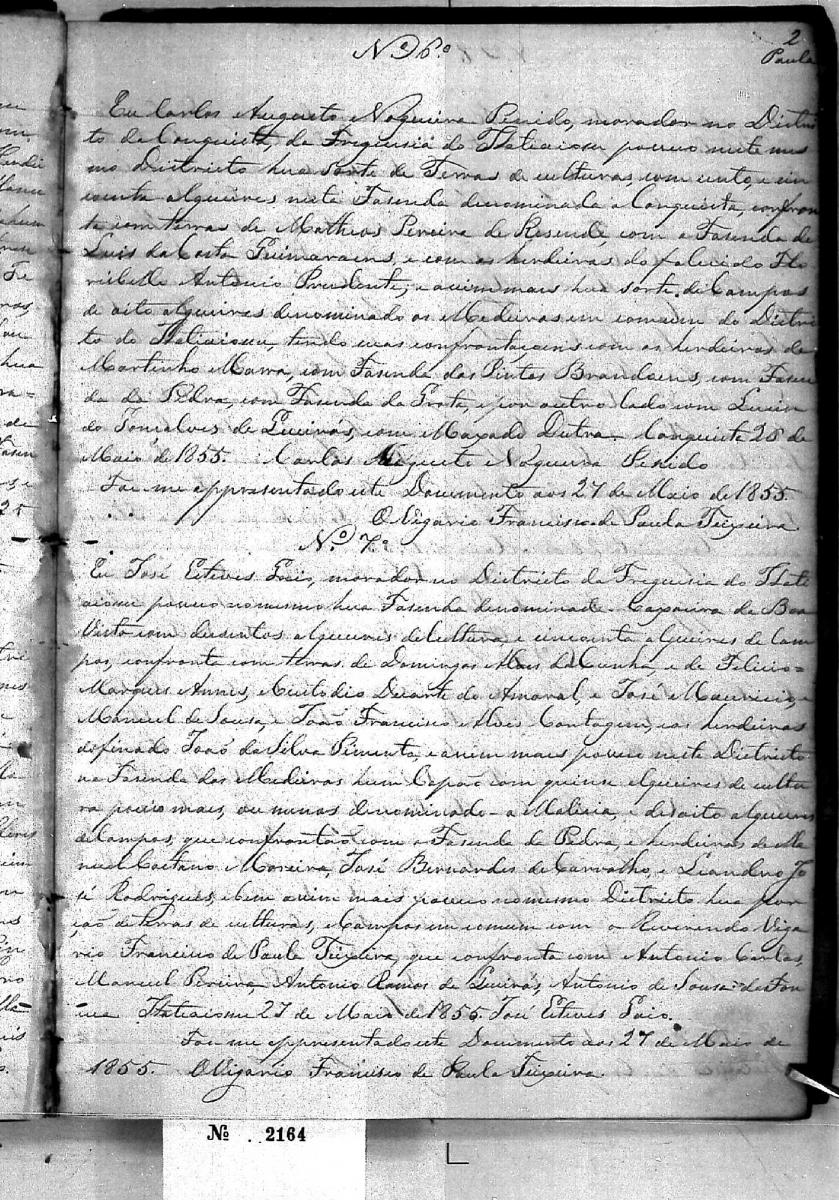 2
Paula
Nº 6º
Eu Carlos Augusto Nogueira Penido, morador no Distri
to da Conquista, da Freguesia do Itatiaiosu possuo neste mes
mo Districto hua sorte de Terras de culturas, com cento, e sin
coenta alqueires nesta Fasenda denominada a Conquista, confron
ta com terras de Matheos Pereira de Resende, com a Fasenda de
Luis da Costa Guimaraens, e com os herdeiros do falecido Flo
Antonio Prudente; e assim mais hua sorte de Campos
de oito alqueires denominado os Medeiros em comum do Distri
to do Itatiaiosu, tendo suas confrontaçoens com os herdeiros de
Martinho Marra, com Fasenda dos Pintos Brandaens, com Fasen
da da Pedra, com Fasenda da Grota, e por outro lado com Lucin
do Gonsalves de Queirós, com Maxado Dutra. Conquista 28 de
Maio de 1855. Carlos Augusto Nogueira Penido
Foi-me appresentado este Documento aos 27 de Maio de 1855.
O Vigario Francisco de Paula Teixeira
Nº 7º
Eu José Esteves Gaio, morador no Districto da Freguesia do Itati
aiosu possuo no mesmo hua Fasenda denominada - Caxoeira da Boa
Vista com dusentos alqueires de Cultura, e cincoenta alqueires de Cam
pos, confronta com terras de Domingos Alves da Cunha, e de Felicio
Marques Annes, e Custodio Duarte do Amaral, e José Mauricio, e
Manoel de Sousa, e João Francisco Alves Contagem, e os herdeiros
do finado João da Silva Pimenta, e assim mais possuo neste Districto
na Fasenda dos Medeiros hum Capão com quinse alqueires de cultu
ra pouco mais, ou menos denominado - a Malicia, e de oito alqueires
de Campos, que confrontão com a Fasenda da Pedra, e herdeiros de Ma
noel Caetano Moreira, José Bernardes de Carvalho, e Leandro Jo
sé Rodrigues, e bem assim mais possuo no mesmo Districto hua por
ção de terras de culturas, e Campos em comum com o Reverendo Viga
rio Francisco de Paula Teixeira, que confronta com Antonio Carlos,
Manoel Pereira, Antonio Ramos de Queirós, Antonio de Sousa da Fon
seca Itatiaiosu 27 de Maio de 1855. José Esteves Gaio.
Foi-me appresentado este Documento aos 27 de Maio de
1855. O Vigario Francisco de Paula Teixeira
Nº 2164